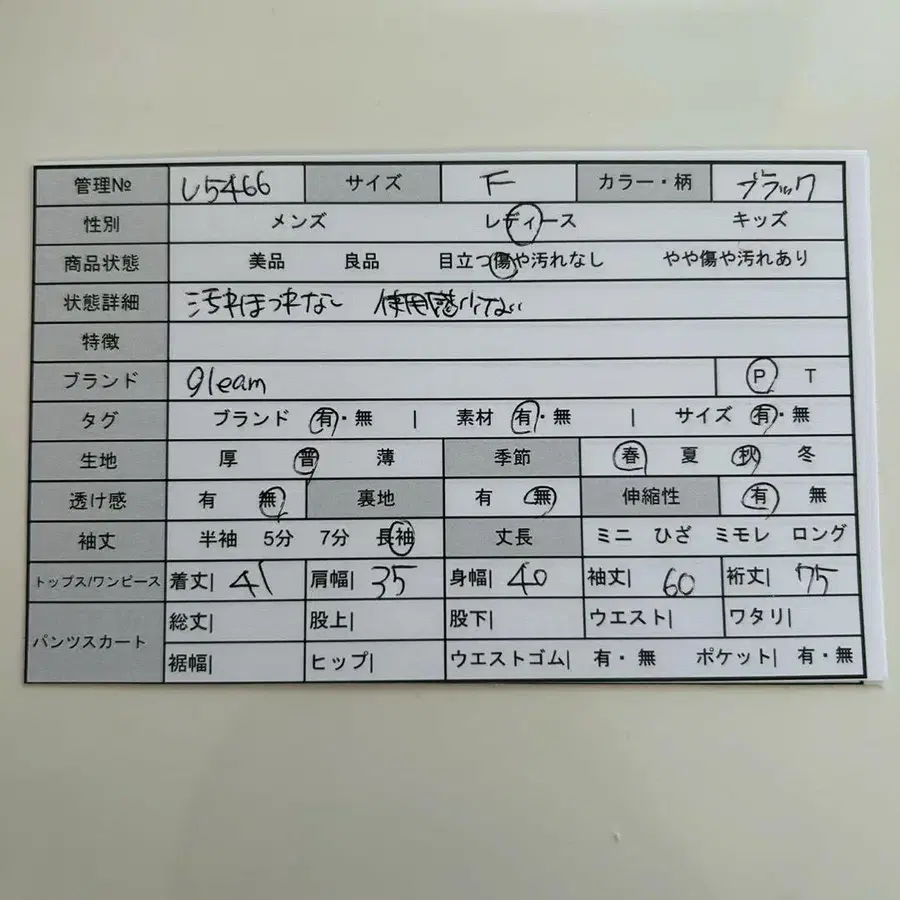 管理№ し5466 サイズ F カラー・柄 ブラック
性別 メンズ レディース キッズ
商品状態 美品 良品 目立つ傷や汚れなし やや傷や汚れあり
状態詳細 汚れほつれなし 使用感少ない
特徴
ブランド gleam P T
タグ ブランド 有・無 | 素材 有・無 | サイズ 有・無
生地 厚 普 薄 季節 春 夏 秋 冬
透け感 有 無 裏地 有 無 伸縮性 有 無
袖丈 半袖 5分 7分 長袖 丈長 ミニ ひざ ミモレ ロング
トップス/ワンピース 着丈| 41 肩幅| 35 身幅| 40 袖丈| 60 裄丈| 75
パンツスカート 総丈| 股上| 股下| ウエスト| ワタリ|
裾幅| ヒップ| ウエストゴム| 有・無 ポケット| 有・無